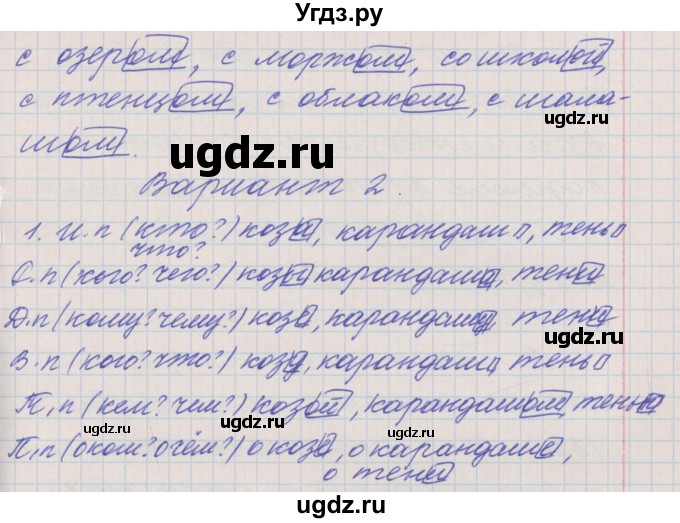 Угдз.ру
с озером, с моржом, со школой,
с птенцом, с облаком, с шала-
шом.
ugdz.ru
ugdz.ru
Вариант 2.
1. И.п (кто? что?) коза, карандаш, тень
С.п (кого? чего?) козы карандаша, тени
ugdz.ru
Д.п (кому? чему?) козе, карандашу, тени
В.п (кого? что?) козу, карандаш, тень
Т.п (кем? чем?) козой, карандашом, тенью
ugdz.ru
ugdz.ru
П.п (о ком? о чём?) о козе, о карандаше,
о тени
ugdz.ru
ugdz.ru